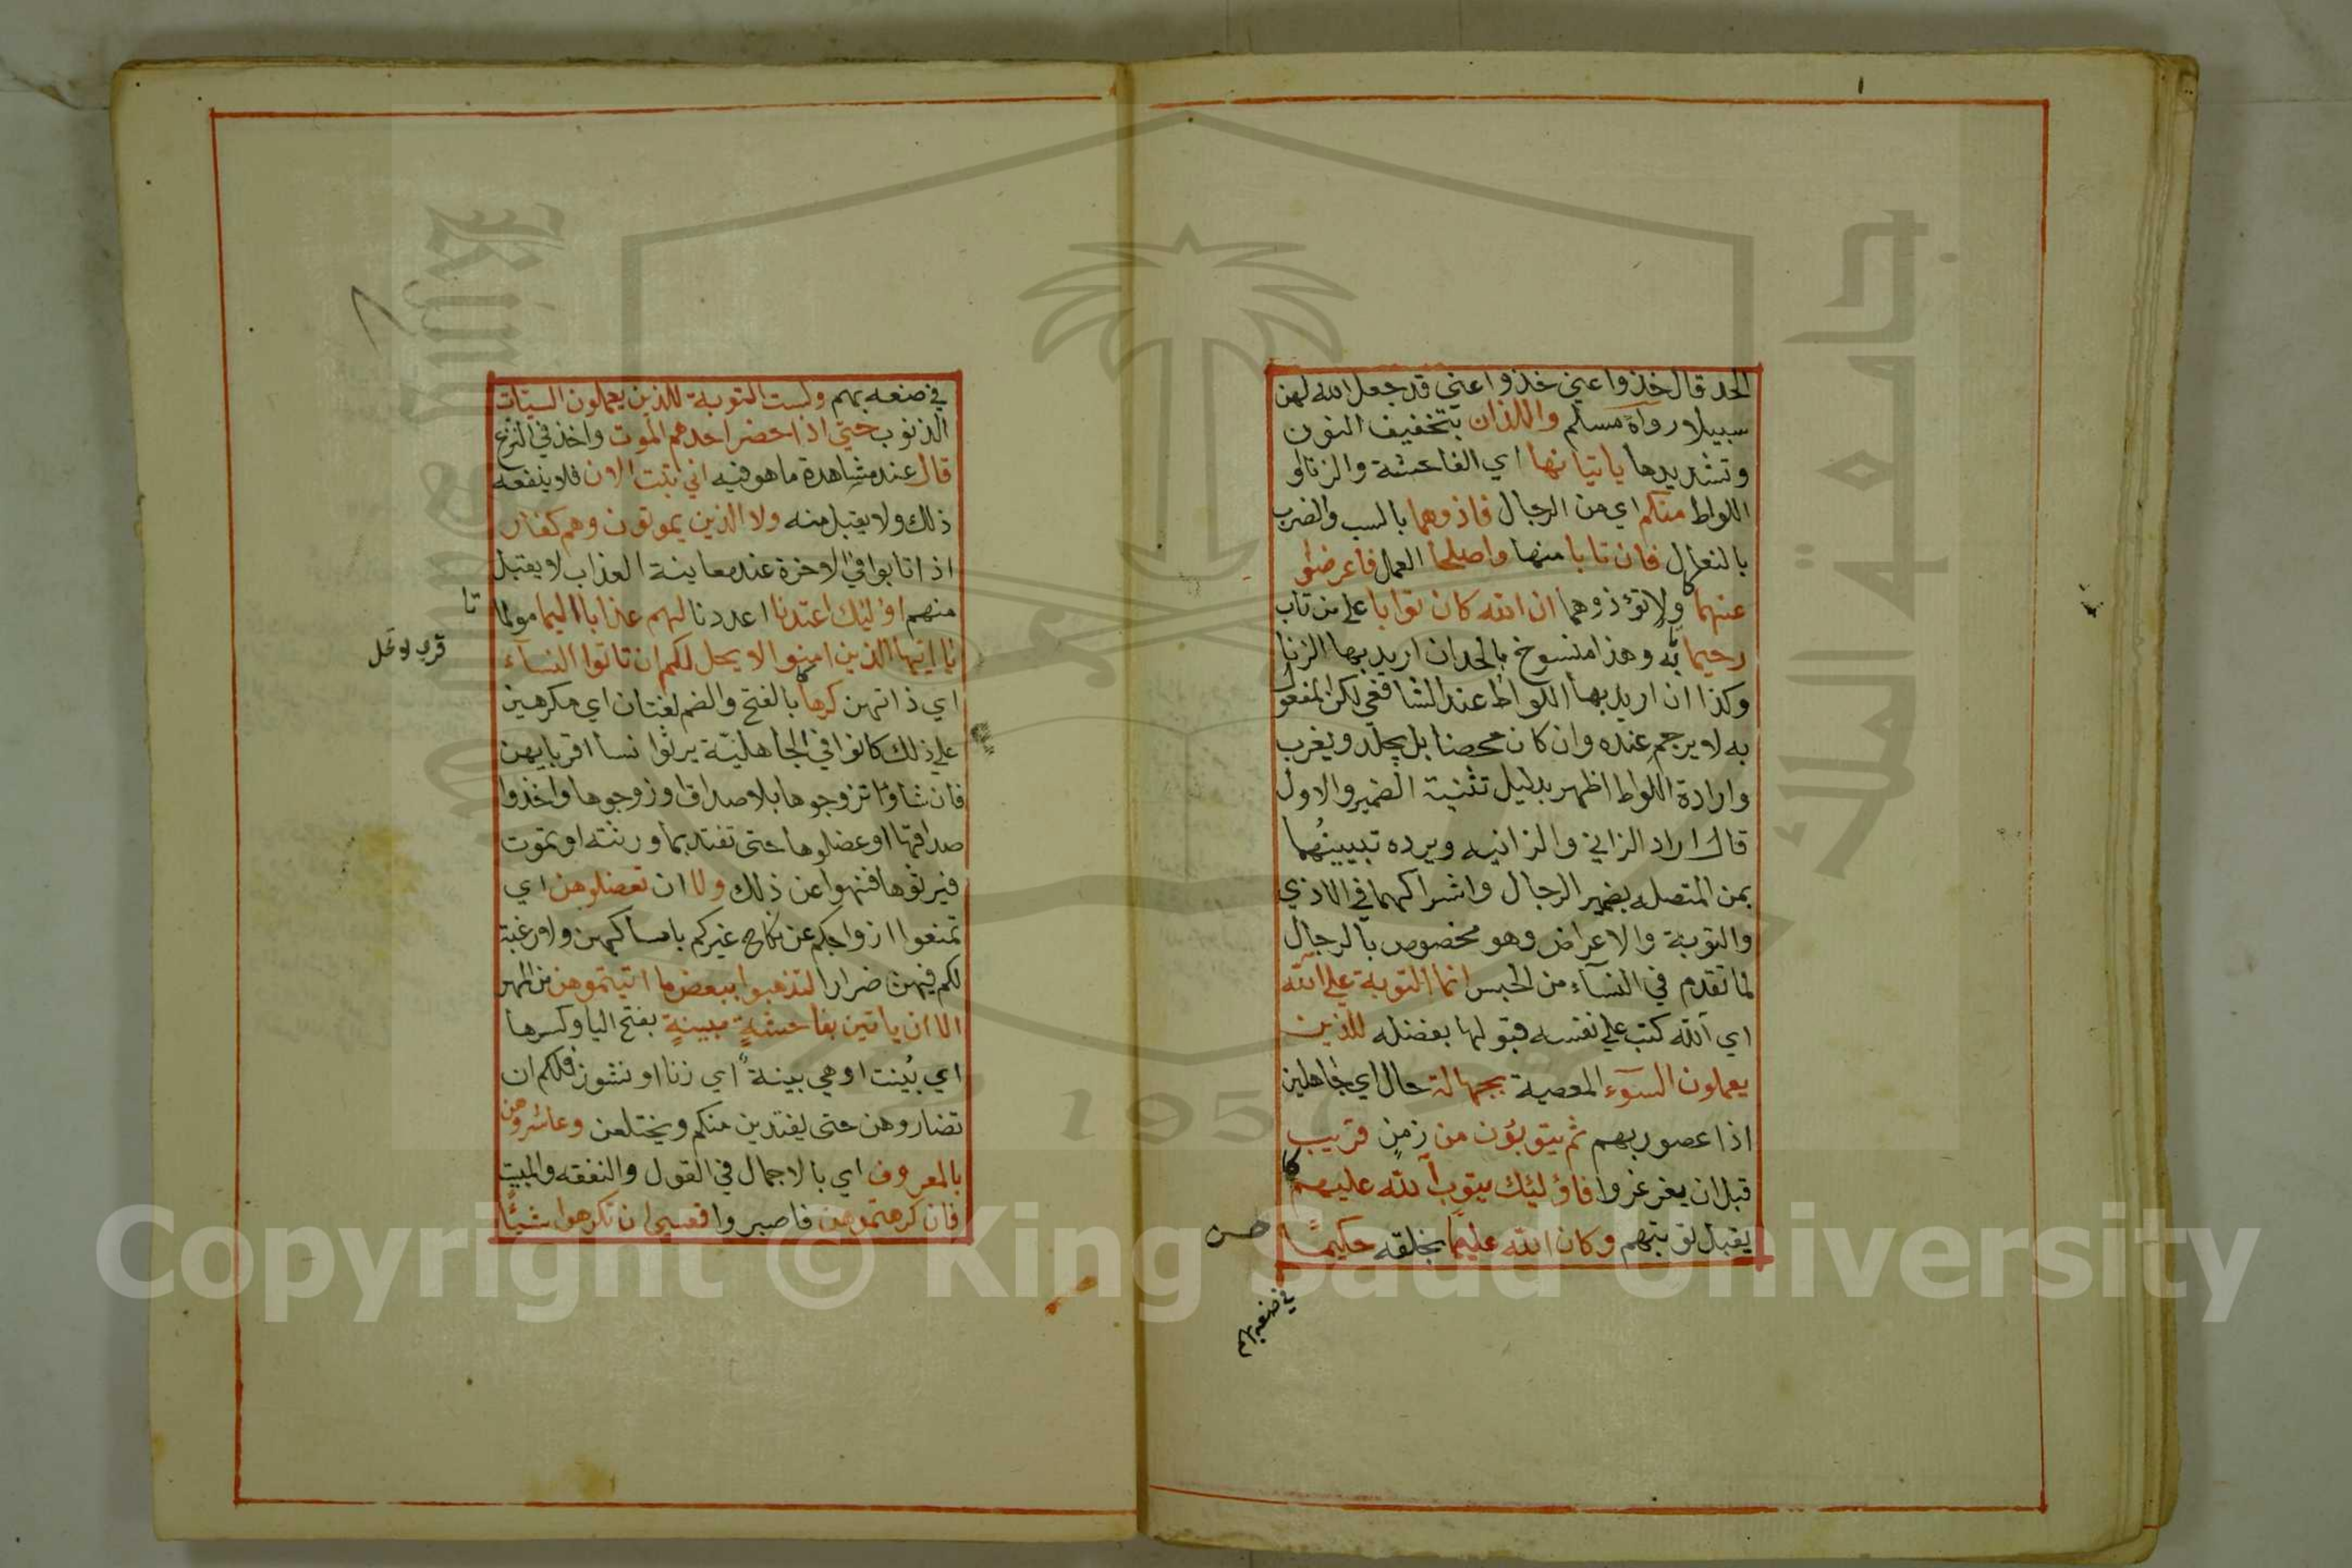 الحد قال خذوا عني خذوا عني قد جعل الله لهن
سبيلا رواه مسلم واللذان بتخفيف النون
وتشديدها ياتيانها اي الفاحشة والزنا او
اللواط منكم اي من الرجال فاذوهما بالسب والضرب
بالنعال فان تابا منها واصلحا العمل فاعرضوا
عنهما ولا تؤذوهما ان الله كان توابا على من تاب
رحيما به وهذا منسوخ بالحد ان اريد بها الزنا
وكذا ان اريد بها اللواط عند الشافعي لكن المفعول
به لا يرجم عنده وان كان محصنا بل يجلد ويغرب
وارادة اللواط اظهر بدليل تثنية الضمير والاول
قال اراد الزاني والزانيه ويرده تبيينهما
بمن المتصله بضمير الرجال واشراكهما في الاذي
والتوبة والاعراض وهو مخصوص بالرجال
لما تقدم في النسآء من الحبس انما التوبة علي الله
اي الله كتب علي نفسه قبولها بفضله للذين
يعملون السوء المعصية بجهالة حال اي جاهلين
اذا عصو ربهم ثم يتوبون من زمن قريب
قبل ان يغرغروا فاؤلئك يتوب الله عليهم
يقبل توبتهم وكان الله عليما بخلقه حكيما
في صنعه بهم
في صنعه بهم وليست التوبة للذين يعملون السيئات
الذنوب حتي اذا حضر احدهم الموت واخذ في النزع
قال عند مشاهدة ما هو فيه اني تبت الان فلا ينفعه
ذلك ولا يقبل منه ولا الذين يموتون وهم كفار
اذا تابوا في الاخرة عند معاينة العذاب لا يقبل
منهم اؤلئك اعتدنا اعددنا لهم عذابا اليما مولما
يا ايها الذين امنوا لا يحل لكم ان تاتوا النسآء
اي ذاتهن كرها بالفتح والضم لغتان اي مكرهين
علي ذلك كانوا في الجاهلية يرثوا نسا اقربايهن
فان شاؤا تزوجوها بلا صداق او زوجوها واخذوا
صداقها او عضلوها حتى تفتد بما ورثته او تموت
فيرثوها فنهوا عن ذلك ولا ان تعضلوهن اي
تمنعوا ازواجكم عن نكاح غيركم بامساكهن ولا رغبة
لكم فيهن ضرارا لتذهبوا ببعض ما اتيتموهن من المهر
الا ان ياتين بفاحشة مبينة بفتح اليا وكسرها
اي بينت او هي بينة اي زنا او نشوز فلكم ان
تضاروهن حتى يفتدين منكم ويختلعن وعاشروهن
بالمعروف اي بالاجمال في القول والنفقه والمبيت
فان كرهتموهن فاصبروا فعسي ان تكرهوا شيئا
Copyright © King Saud University
1957